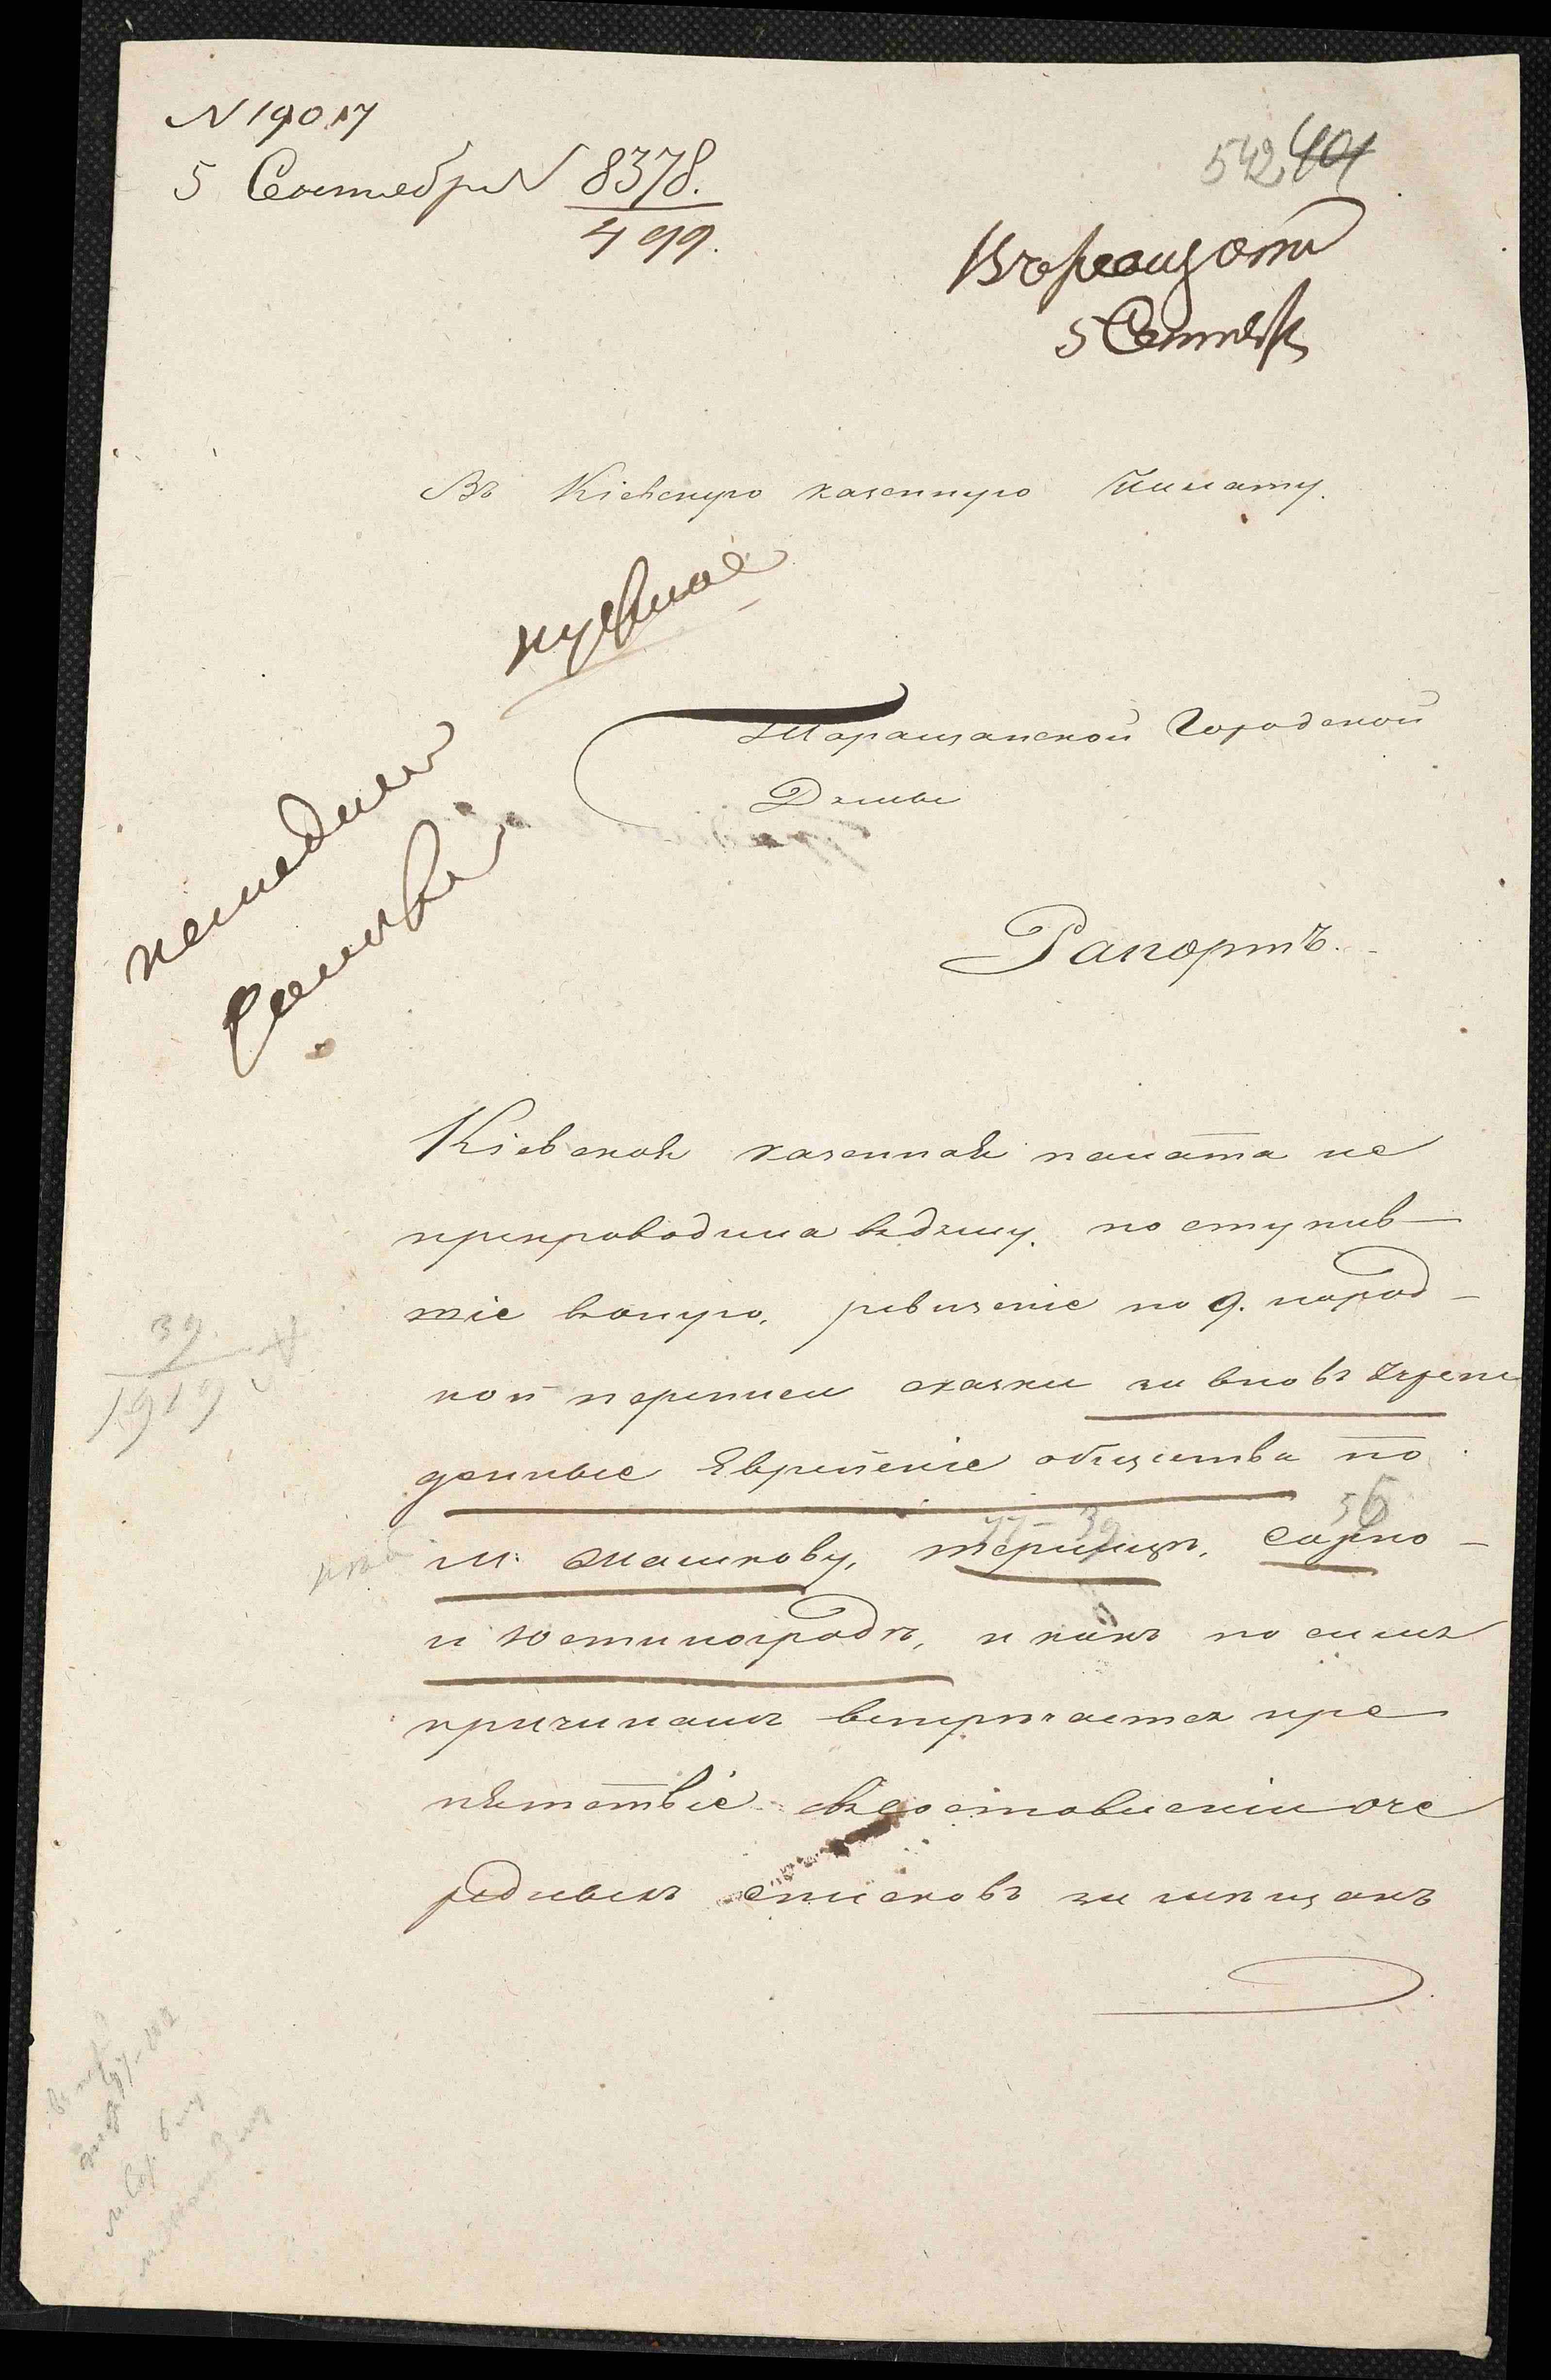 N 19017
5 Сентебр N 8378.
499.
542 401
5 Сентяб
Въ Кіевскую казенную Палату.
нужное
Таращанской Городской
Думы
немедлен
Рапортъ.
Кіевская казенная палата не
препроводила вдуму. поступив–
шіе воную, ревизскіе по 9. народ–
ной переписи скаски за вновь Учреж
денные Еврейскіе общества по
м: Жашкову, 39 56
и Юстинограду, и какъ по симъ
причинамъ встречается пре
пятствіе составленіи оче
редныхъ списковъ за мещанъ
39.
1919